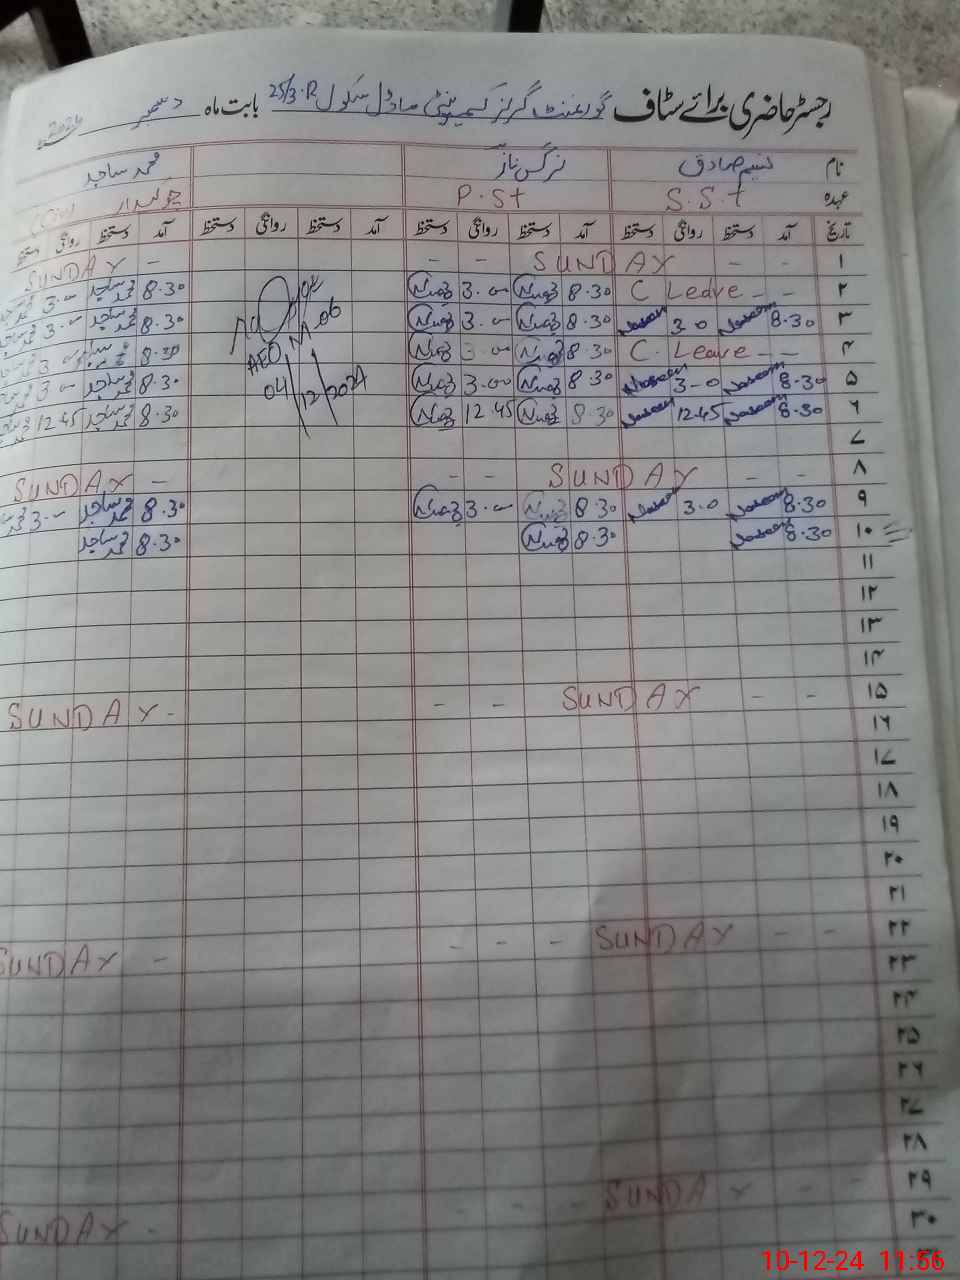 رجسٹر حاضری برائے سٹاف گورنمنٹ گرلز کمیونٹی ماڈل سکول 25/3.R بابت ماہ دسمبر 2024
نام نسیم صادق نرگس ناز محمد ساجد
عہدہ S.S.t P.St چوکیدار (Civil
تاریخ آمد دستخط روانگی دستخط آمد دستخط روانگی دستخط آمد دستخط روانگی دستخط آمد دستخط روانگی دستخط
۱ - - SUNDAY - - - SUNDAY
۲ - - C Leave 8.30 3.00 8.30 محمد ساجد 3.00
۳ 8.30 Naseem 3.0 Naseem 8.30 3.00 8.30 محمد ساجد 3.00
۴ - - C. Leave 8.30 3.00 8.30 محمد ساجد 3.00
AEO M.06
۵ 8.30 Naseem 3.0 Naseem 8.30 3.00 8.30 محمد ساجد 3.00
04/12/2024
۶ 8.30 Naseem 12.45 Naseem 8.30 12.45 8.30 محمد ساجد 12.45
۷
۸ - - SUNDAY - - - SUNDAY
۹ 8.30 Naseem 3.0 Naseem 8.30 3.00 8.30 محمد ساجد 3.00
۱۰ 8.30 Naseem 8.30 8.30 محمد ساجد
۱۱
۱۲
۱۳
۱۴
۱۵ - - SUNDAY - - - SUNDAY
۱۶
۱۷
۱۸
۱۹
۲۰
۲۱
۲۲ - - SUNDAY - - - - SUNDAY
۲۳
۲۴
۲۵
۲۶
۲۷
۲۸
۲۹ - - SUNDAY - - - - SUNDAY
۳۰
۳۱
10-12-24 11:56